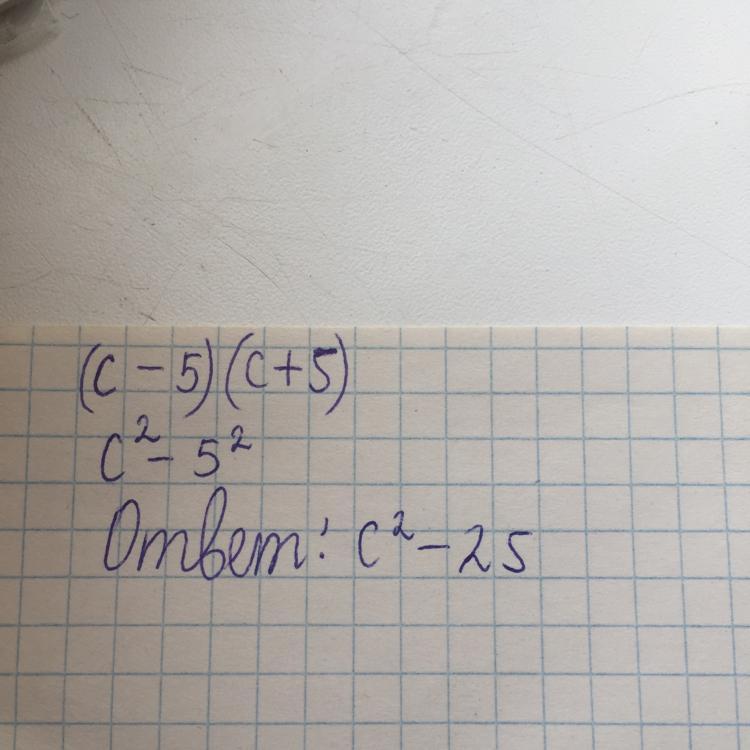 (c - 5)(c + 5)
c² - 5²
Ответ: c² - 25